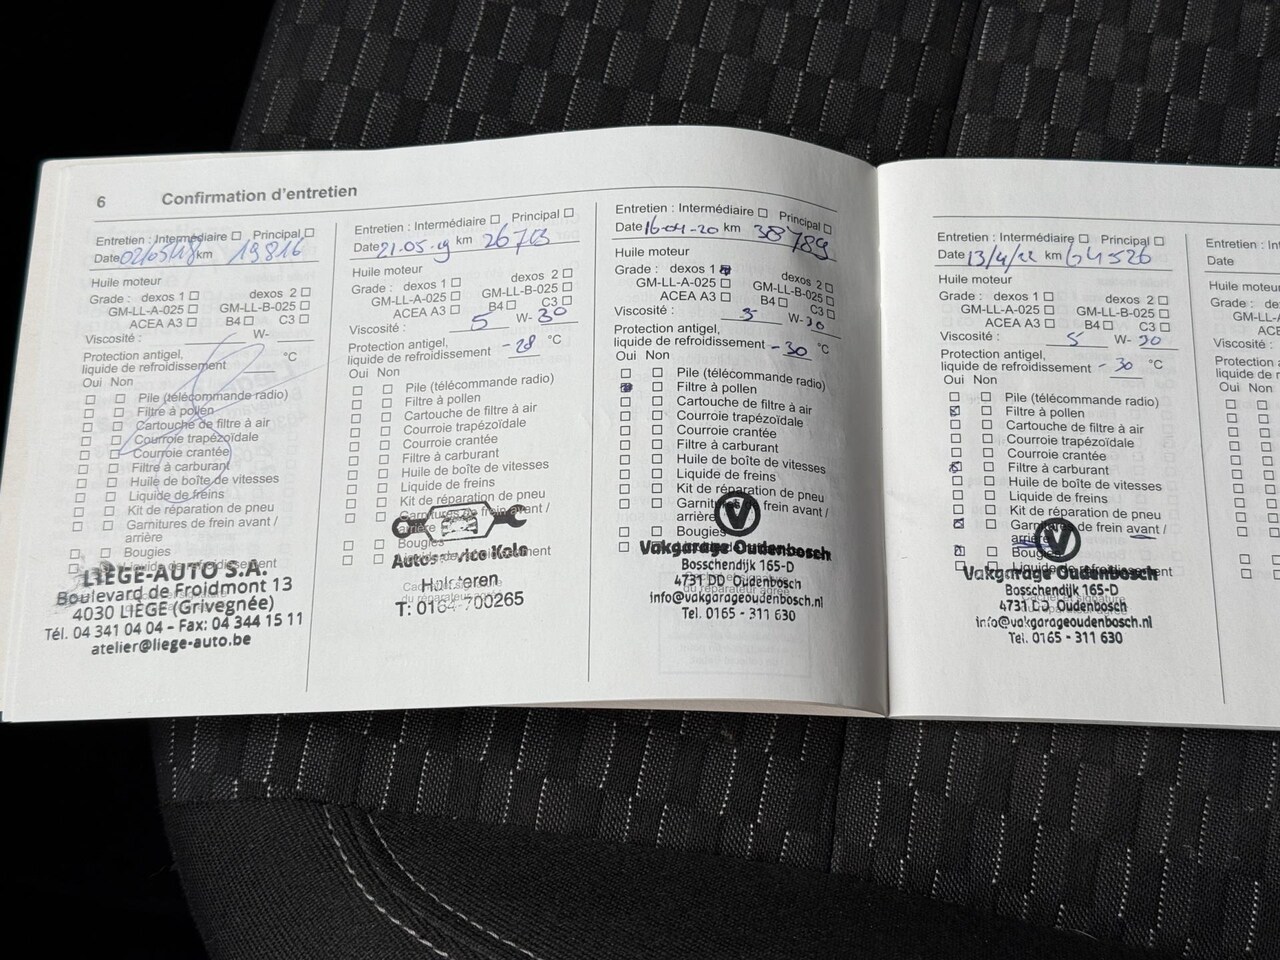 6 Confirmation d'entretien
Entretien : Intermédiaire Principal
Date 02/05/18 km 19816
Huile moteur
Grade : dexos 1 dexos 2
GM-LL-A-025 GM-LL-B-025
ACEA A3 B4 C3
Viscosité : W-
Protection antigel,
liquide de refroidissement °C
Oui Non
Pile (télécommande radio)
Filtre à pollen
Cartouche de filtre à air
Courroie trapézoïdale
Courroie crantée
Filtre à carburant
Huile de boîte de vitesses
Liquide de freins
Kit de réparation de pneu
Garnitures de frein avant /
arrière
Bougies
Liquide de refroidissement
LIEGE-AUTO S.A.
Boulevard de Froidmont 13
4030 LIEGE (Grivegnée)
Tél. 04 341 04 04 - Fax: 04 344 15 11
atelier@liege-auto.be
Entretien : Intermédiaire Principal
Date 21.05.19 km 26703
Huile moteur
Grade : dexos 1 dexos 2
GM-LL-A-025 GM-LL-B-025
ACEA A3 B4 C3
Viscosité : 5 W- 30
Protection antigel,
liquide de refroidissement -28 °C
Oui Non
Pile (télécommande radio)
Filtre à pollen
Cartouche de filtre à air
Courroie trapézoïdale
Courroie crantée
Filtre à carburant
Huile de boîte de vitesses
Liquide de freins
Kit de réparation de pneu
Garnitures de frein avant /
arrière
Bougies
Kole
Halsteren
T: 0164-700265
Entretien : Intermédiaire Principal
Date 16-04-20 km 38789
Huile moteur
Grade : dexos 1 dexos 2
GM-LL-A-025 GM-LL-B-025
ACEA A3 B4 C3
Viscosité : 5 W- 30
Protection antigel,
liquide de refroidissement -30 °C
Oui Non
Pile (télécommande radio)
Filtre à pollen
Cartouche de filtre à air
Courroie trapézoïdale
Courroie crantée
Filtre à carburant
Huile de boîte de vitesses
Liquide de freins
Kit de réparation de pneu
Garnitures de frein avant /
arrière
Bougies
Vakgarage Oudenbosch
Bosschendijk 165-D
4731 DD Oudenbosch
info@vakgarageoudenbosch.nl
Tel. 0165 - 311 630
Entretien : Intermédiaire Principal
Date 13/4/22 km 64526
Huile moteur
Grade : dexos 1 dexos 2
GM-LL-A-025 GM-LL-B-025
ACEA A3 B4 C3
Viscosité : 5 W- 30
Protection antigel,
liquide de refroidissement -30 °C
Oui Non
Pile (télécommande radio)
Filtre à pollen
Cartouche de filtre à air
Courroie trapézoïdale
Courroie crantée
Filtre à carburant
Huile de boîte de vitesses
Liquide de freins
Kit de réparation de pneu
Garnitures de frein avant /
arrière
Bougies
Vakgarage Oudenbosch
Bosschendijk 165-D
4731 DD Oudenbosch
info@vakgarageoudenbosch.nl
Tel. 0165 - 311 630
Entretien : Int
Date
Huile moteu
Grade : de
GM-LL-A
ACE
Viscosité :
Protection a
liquide de r
Oui Non